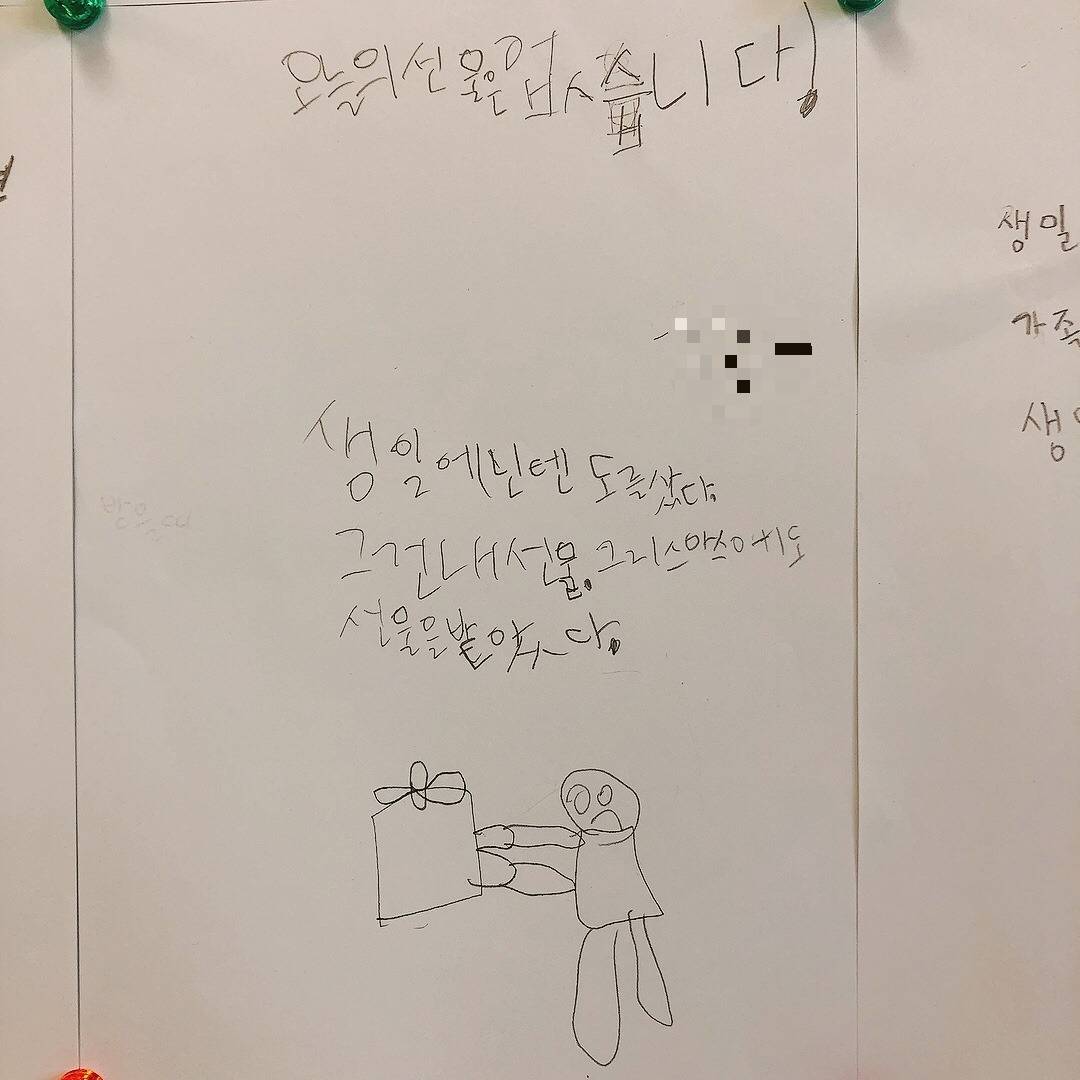 오늘의선물은업습니다!
생일에닌텐도를샀다.
그건내선물.크리스마스에도
선물을받았다.
생일
가족
생